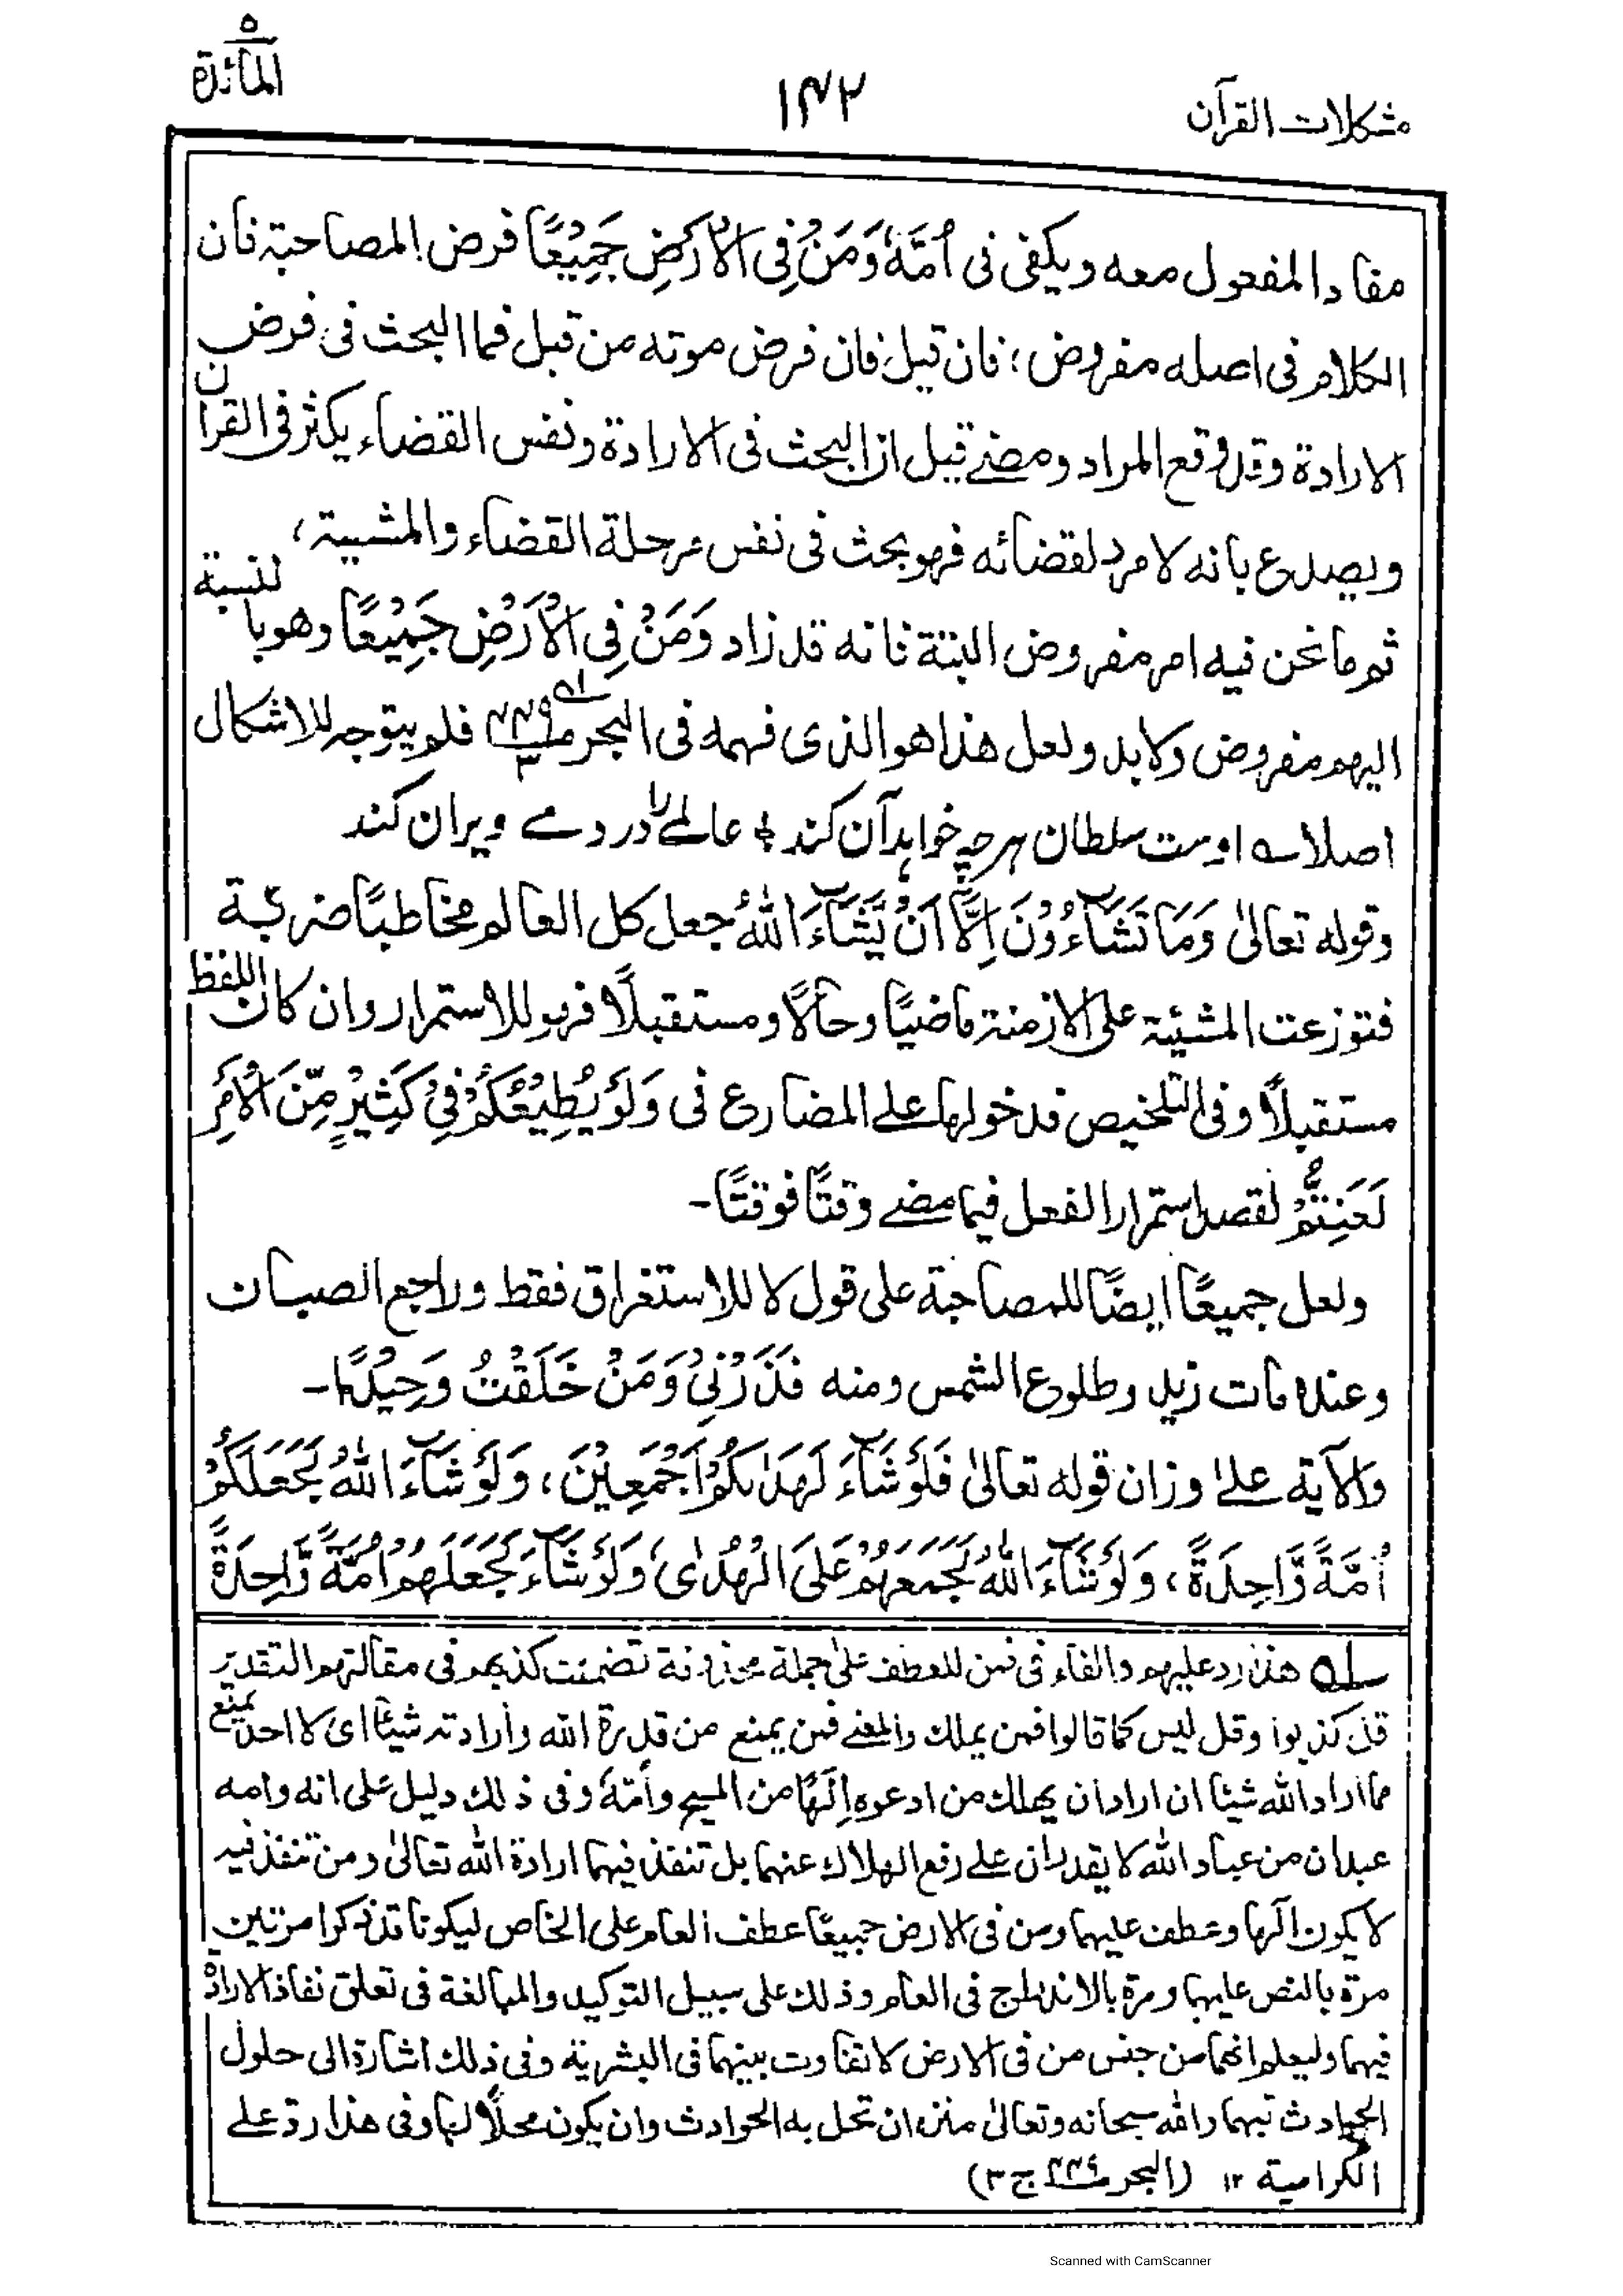 مشكلات القرآن
١٤٢
المائدة ٥
مفاد المفعول معه ويكفى فى اُمَّهٗ وَمَنْ فِى الْاَرْضِ جَمِيْعًا فرض المصاحبة فان
الكلام فى اصله مفروض؛ فان قيل فان فرض موته من قبل فما البحث فى فرض
الارادة وقد وقع المراد ومضے قيل ان البحث فى الارادة ونفس القضاء يكثر فى القرآن
ويصدع بانه لا مرد لقضائه فهو بحث فى نفس مرحلة القضاء والمشيية،
ثم ما نحن فيه امر مفروض البتة فانه قد زاد وَمَنْ فِى الْاَرْضِ جَمِيْعًا وهو بالنسبة
اليهم مفروض ولابد ولعل هذا هو الذى فهمه فى البحر ص٤٤٩ ج٣ ؎١ فلم يتوجه للاشكال
اصلا ؎ اوست سلطان هر چه خواهد آن كند ؞ عالمے را در دمے ويران كند
وقوله تعالىٰ وَمَا تَشَآءُوْنَ اِلَّآ اَنْ يَّشَآءَ اللّٰهُ جعل كل العالم مخاطبًا ضربة
فتوزعت المشيئة على الازمنة ماضيًا وحالًا ومستقبلًا فهو للاستمرار وان كان اللفظ
مستقبلًا وفى التلخيص فدخولها علے المضارع فى وَلَوْ يُطِيْعُكُمْ فِىْ كَثِيْرٍ مِّنَ الْاَمْرِ
لَعَنِتُّمْ لقصد استمرار الفعل فيما مضے وقتًا فوقتًا۔
ولعل جميعًا ايضًا للمصاحبة على قول لا للاستغراق فقط وراجع الصبان
وعنده مات زيد وطلوع الشمس ومنه فَذَرْنِىْ وَمَنْ خَلَقْتُ وَحِيْدًا۔
والآية علےٰ وزان قوله تعالىٰ فَلَوْ شَآءَ لَهَدٰىكُمْ اَجْمَعِيْنَ، وَلَوْ شَآءَ اللّٰهُ لَجَعَلَكُمْ
اُمَّةً وَّاحِدَةً، وَلَوْ شَآءَ اللّٰهُ لَجَمَعَهُمْ عَلَى الْهُدٰى، وَلَوْ شَآءَ لَجَعَلَهُمْ اُمَّةً وَّاحِدَةً
؎١ هذا رد عليهم والفاء فى فمن للعطف علىٰ جملة محذوفة تضمنت كذبهم فى مقالتهم التقدير
قد كذبوا وقل ليس كما قالوا فمن يملك والمعنے فمن يمنع من قدرة الله وارادته شيئًا اى لا احد يمنع
مما اراد الله شيئا ان اراد ان يهلك من ادعوه اِلٰهًا من المسيح وامّهٗ وفى ذلك دليل على انه وامه
عبدان من عباد الله لا يقدران علے رفع الهلاك عنهما بل تنفذ فيهما ارادة الله تعالىٰ ومن تنفذ فيه
لا يكون الٰها وعطف عليهما ومن فى الارض جميعًا عطف العام على الخاص ليكونا قد ذكرا مرتين
مرة بالنص عليهما ومرة بالاندراج فى العام وذلك على سبيل التوكيد والمبالغة فى تعلق نفاذ الارادة
فيهما وليعلم انهما من جنس من فى الارض لا تفاوت بينهما فى البشرية وفى ذلك اشارة الى حلول
الحوادث بهما والله سبحانه وتعالىٰ منزه ان تحل به الحوادث وان يكون محلًا لها وفى هذا ردّ علے
الكرامية ١٢ (البحر ص٤٤٩ ج٣)
Scanned with CamScanner